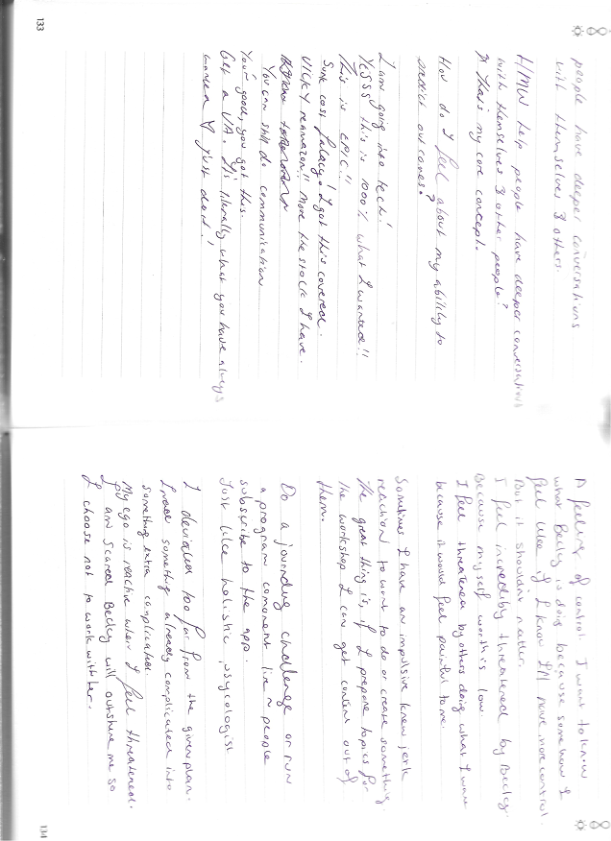 133
people have deeper conversations
with themselves & others.
HMW help people have deeper conversations
with themselves & other people?
That's my core concept.
How do I feel about my ability to
out comes?
I am going into tech!
YESSS this is 1000% what I wanted!!
This is EPIC!!
Sunk cost falacy! I got this covered.
VICKY! More the stock I have.
You can still do communication
Your good, you got this.
Get a VA. It's literally what you have always
wanted just do it!
134
A feeling of control. I want to know
what Becky is doing because somehow I
feel like if I know I'll have more control.
But it shouldn't matter.
I feel incredibly threatened by Becky.
Because my self worth is low.
I feel threatened by others doing what I want
because it would feel painful to me.
Sometimes I have an impulsive knew jerk
reaction to want to do or create something.
The great thing is, if I prepare topics for
the workshop I can get content out of
them.
Do a journaling challenge or run
a program component live ~ people
subscribe to the app.
Just like holistic psycologist
I deviated too far from the given plan.
I made something already complicated into
something extra complicated.
My ego is reactive when I feel threatened.
I am scared Becky will outshine me so
I choose not to work with her.